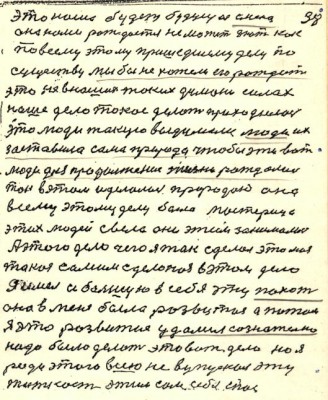 Это наша будет будущая смена
она нами рождается не может жить как
по всему этому пришедшему делу по
существу мы бы не хотели его рождать
это не в наших таких димони силах
наше дело такое делать приходилось
это люди такую выдумали люди их
заставила сама природа чтобы эти вот
люди для продолжения жизни рождались
так в этом сделались природою она
всему этому делу была мастерица
этих людей свела они этим занимались
А этого дело чего я так сделал это моя
такая самим сделокая в этом дело
Я имел а боянную в себя эту похоть
она в мене была развитая а потом
я это развитие удалил сознательно
надо было делать это вот дело но я
ради этого всего не выпускал эту
жидкость этим сам себя спас